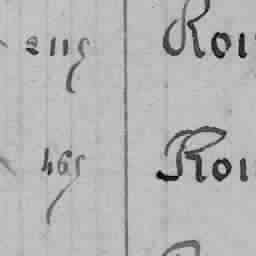 2115 Roi
465 Roi